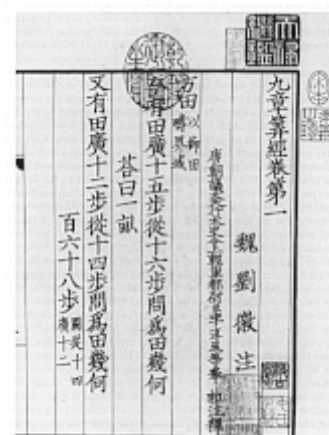 九章筭經卷第一
魏劉徽注
唐朝議大夫行太史令上輕車都尉臣李淳風等奉 敕注釋
方田以御田疇界域
今有田廣十五步從十六步問爲田幾何
荅曰一畝
又有田廣十二步從十四步問爲田幾何
百六十八步圖從十四廣十二